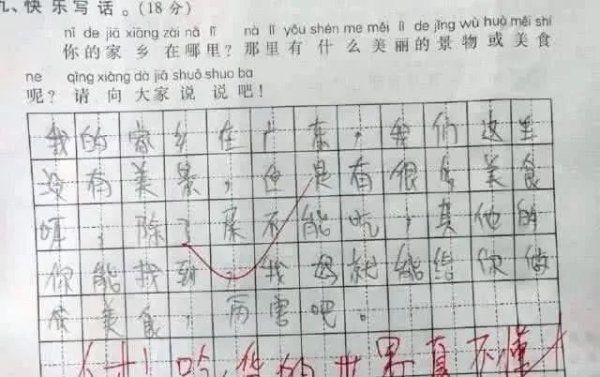 九、快乐写话。(18分)
nǐ de jiā xiāng zài nǎ lǐ nà lǐ yǒu shén me měi lì de jǐng wù huò měi shí
你的家乡在哪里？那里有什么美丽的景物或美食
ne qǐng xiàng dà jiā shuō shuo ba
呢？请向大家说说吧！
我的家乡在广东，我们这里
没有美景，但是有很多美食
哦，除了屎不能吃，其他的
你能找到，我妈就能给你做
成美食，厉害吧。
哈，你的世界真不懂